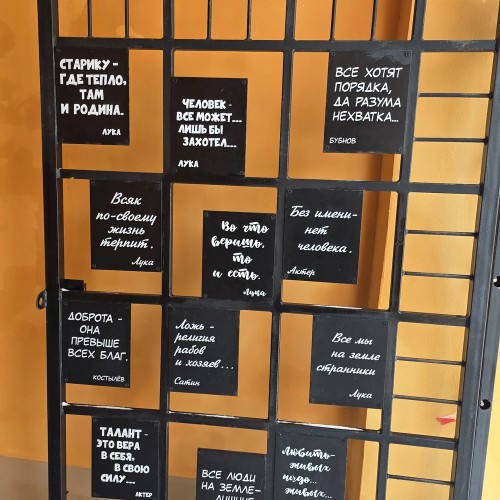 СТАРИКУ -
ГДЕ ТЕПЛО,
ТАМ
И РОДИНА.
ЛУКА
ЧЕЛОВЕК -
ВСЕ МОЖЕТ...
ЛИШЬ БЫ
ЗАХОТЕЛ...
ЛУКА
ВСЕ ХОТЯТ
ПОРЯДКА,
ДА РАЗУМА
НЕХВАТКА...
БУБНОВ
Всяк
по-своему
жизнь
терпит.
Лука
Во что
веришь,
то
и есть.
Лука
Без имени-
нет
человека.
Актер
ДОБРОТА -
ОНА
ПРЕВЫШЕ
ВСЕХ БЛАГ.
КОСТЫЛЁВ
Ложь-
религия
рабов
и хозяев...
Сатин
Все мы
на земле
странники
Лука
ТАЛАНТ -
ЭТО ВЕРА
В СЕБЯ,
В СВОЮ
СИЛУ...
АКТЕР
ВСЕ ЛЮДИ
НА ЗЕМЛЕ-
Любить-
живых
надо...
живых...